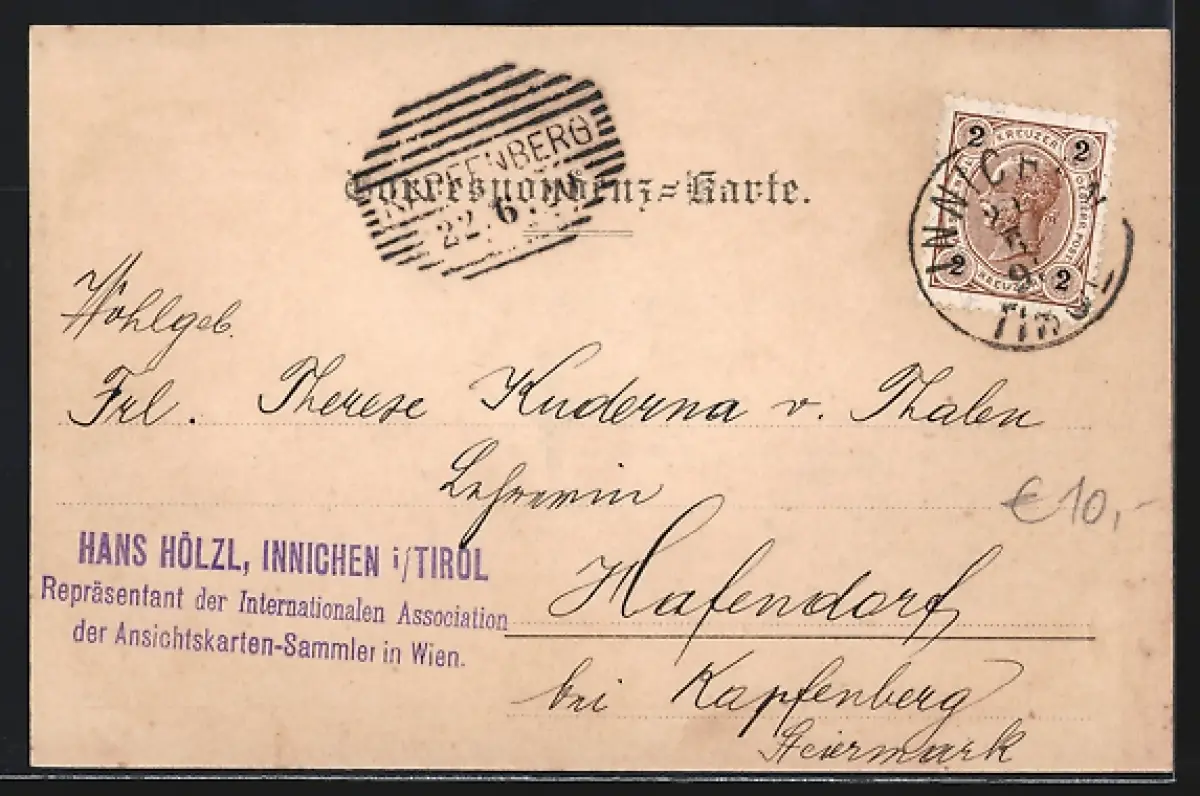 KAPFENBERG
22. 6.
Correspondenz=Karte.
2 KREUZER 2
2 KREUZER 2
INNICHEN
TIROL
Wohlgeb.
Frl. Therese Kuderna v. Thalen
Lehrerin
€ 10,-
HANS HÖLZL, INNICHEN i/TIROL
Repräsentant der Internationalen Association
der Ansichtskarten-Sammler in Wien.
Hafendorf
bei Kapfenberg
Steiermark